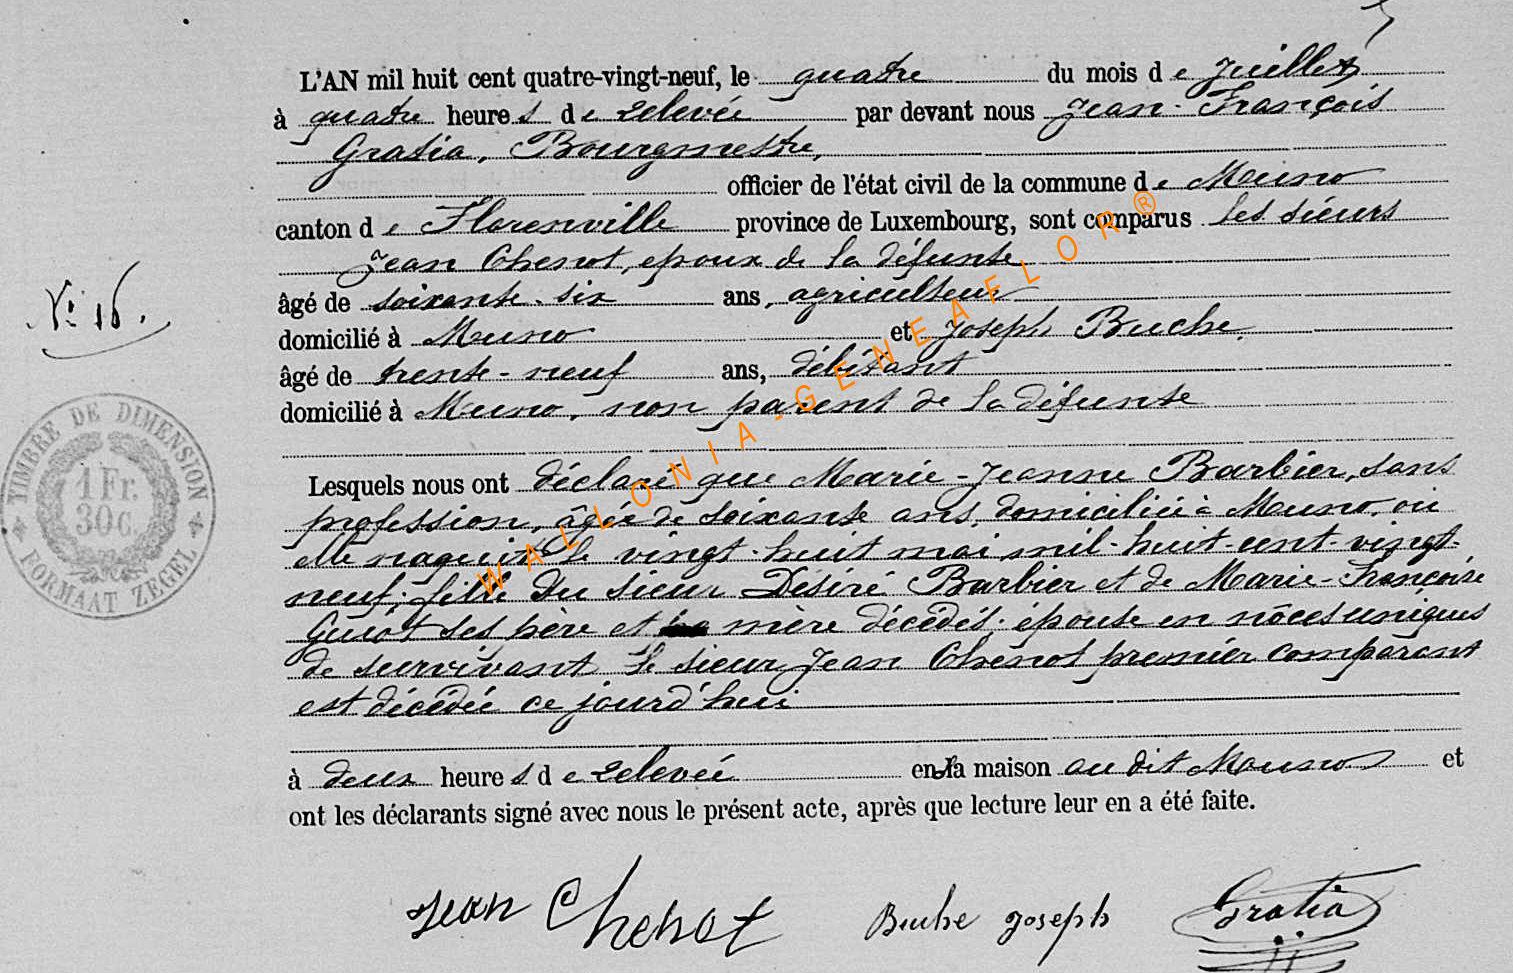 L'AN mil huit cent quatre-vingt-neuf, le quatre du mois de Juillet
à quatre heures de relevée par devant nous Jean-François
Gratia, Bourgmestre,
officier de l'état civil de la commune de Muno
canton de Florenville province de Luxembourg, sont comparus les sieurs
Jean Chenot, epoux de la défunte
âgé de soixante-six ans, agriculteur
domicilié à Muno et Joseph Buche,
N° 16.
âgé de trente-neuf ans, débitant
domicilié à Muno, non parent de la défunte
Lesquels nous ont déclaré que Marie-Jeanne Barbier, sans
profession, âgée de soixante ans, domiciliée à Muno, où
elle naquit le vingt-huit mai mil-huit-cent-vingt-
neuf; fille du sieur Désiré Barbier et de Marie-Françoise
Guiot ses père et mère décédés; épouse en nôces uniques
de survivant le sieur Jean Chenot premier comparant
est décédée ce jourd'hui
à deux heures de relevée en sa maison au dit Muno et
ont les déclarants signé avec nous le présent acte, après que lecture leur en a été faite.
Jean Chenot Buche Joseph Gratia
TIMBRE DE DIMENSION
1 Fr.
30 c.
FORMAAT ZEGEL
WALLONIA-GENEAFLOR®